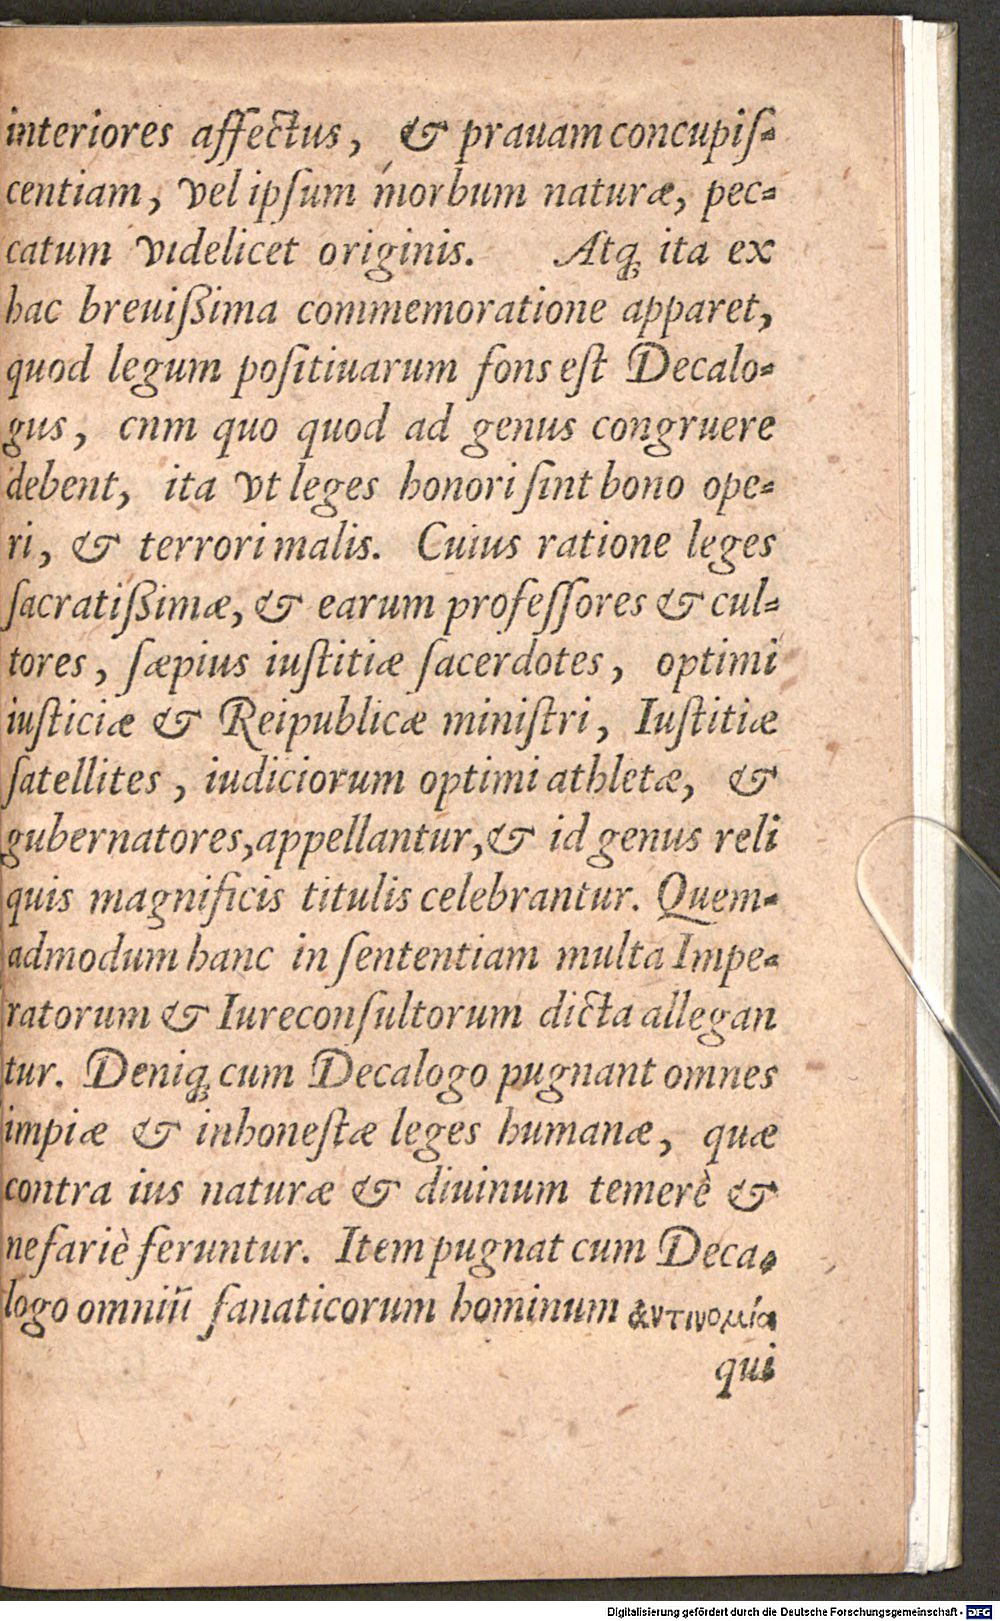 interiores affectus, & prauam concupiſ-
centiam, vel ipſum morbum naturæ, pec-
catum videlicet originis. Atq́; ita ex
hac breuiſsima commemoratione apparet,
quod legum poſitiuarum fons eſt Decalo-
gus, cnm quo quod ad genus congruere
debent, ita vt leges honori ſint bono ope-
ri, & terrori malis. Cuius ratione leges
ſacratiſsimæ, & earum profeſſores & cul-
tores, ſæpius iuſtitiæ ſacerdotes, optimi
iuſticiæ & Reipublicæ miniſtri, Iuſtitiæ
ſatellites, iudiciorum optimi athletæ, &
gubernatores, appellantur, & id genus reli
quis magnificis titulis celebrantur. Quem-
admodum hanc in ſententiam multa Impe-
ratorum & Iureconſultorum dicta allegan
tur. Deniq; cum Decalogo pugnant omnes
impiæ & inhoneſtæ leges humanæ, quæ
contra ius naturæ & diuinum temerè &
nefariè feruntur. Item pugnat cum Deca-
logo omniū fanaticorum hominum ἀντινομία
qui
Digitalisierung gefördert durch die Deutsche Forschungsgemeinschaft - DFG